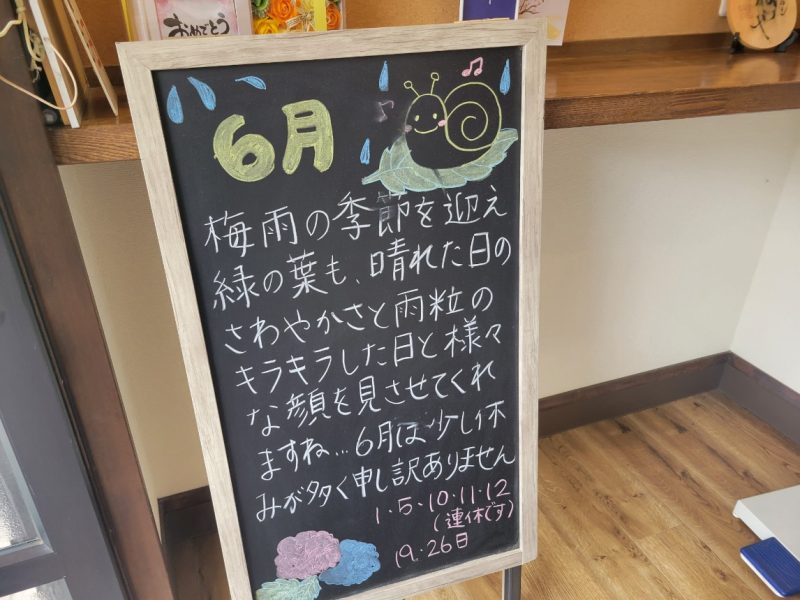 おめでとう
6月
梅雨の季節を迎え
緑の葉も、晴れた日の
さわやかさと雨粒の
キラキラした日と様々
な顔を見させてくれ
ますね…6月は少し休
みが多く申し訳ありません
1・5・10・11・12
(連休です)
19・26日